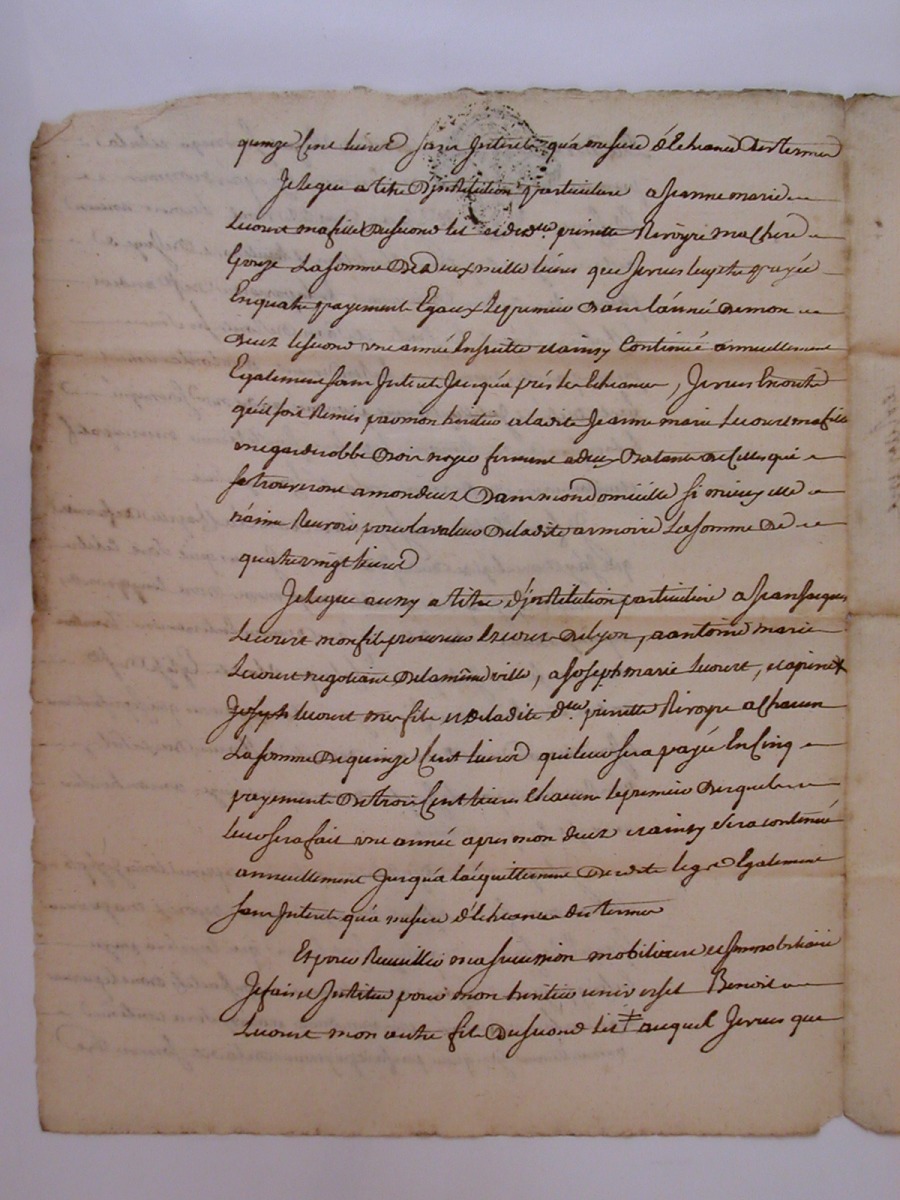 quinze Cent livres sans Interets qu'a mesure d'Echeance des termes
Je legue a titre d'jnstitution particuliere a Jeanne marie
Lecourt ma fille du second lit et de dlle. pierrette Rivoyre ma chere
Epouze La somme de deux mille livres que je veux luy etre payée
En quatre payements Egaux Le premier dans l'année de mon
deces le second une année Ensuitte et ainsy Continué annuellement
Egalement sans Interets jusqu'a près les Echeances, Je veux En outre
qu'il soit Remis par mon heritier a ladite Jeanne marie Lecourt ma fille
une garderobbe bois noyer fermant a deux Batants de Celles qui
se trouveront a mon deces dans mon domicille si mieux elle
n'aime Recevoir pour la valeur de ladite armoire La somme de
quatre vingt livres
Je legue aussy a titre d'jnstitution particuliere a Jean Jacques
Lecourt mon fils procureur Ez cours de Lyon, a antoine marie
Lecourt negotiant de la même ville, a Joseph marie Lecourt, et a pierre
Joseph Lecourt mes fils et de ladite dlle. pierrette Rivoyre a chacun
La somme de quinze Cent livres qui leur sera payée En Cinq
payements de trois Cent livres Chacun le premier desquels
leur sera fait une année apres mon deces et ainsy sera continué
annuellement jusqu'a l'acquittement desdits legs Egalement
sans Interets qu'a mesure d'Echeance des termes
Et pour Recueillir ma succession mobiliaire et jmmobiliaire
Je fais et Jnstitue pour mon heritier universel Benoit
Lecourt mon autre fils du second lit ‡ auquel Je veux que